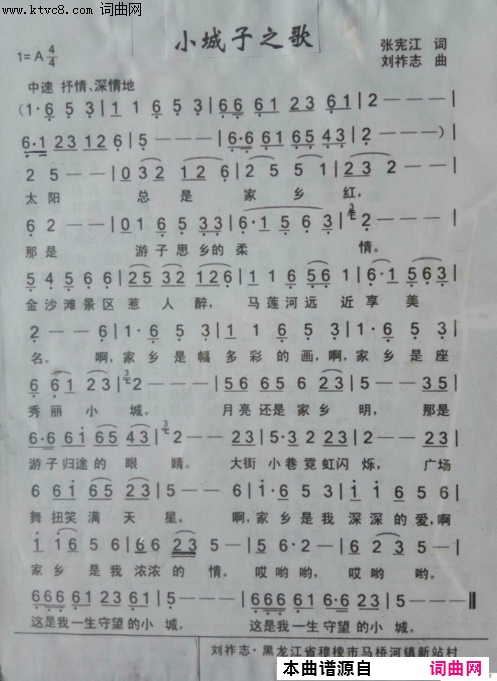 www.ktvc8.com 词曲网
小城子之歌
1=A 4/4
张宪江 词
刘祚志 曲
中速 抒情、深情地
(1·6 5 3 | 1 1 6 5 3 | 66 61 23 61 | 2 - - - |
6·1 23 12 6 | 5 - - - | 6·6 61 65 43 | 2 - - - ) |
2 5 - - | 032 12 6 | 2 5 5 1 | 23 2 - - |
太阳 总是家乡红,
6 2 - - | 01 65 33 | 6·1 5 53 | 2 - - - |
那是 游子思乡的柔 情。
5 45 66 | 25 32 126 | 1 1 6 56 | 6·1 563 |
金沙滩景区惹人醉, 马莲河远近享美
2 - - 6 | 1·6 5 3 | 1 1 6 5 3 | 1·6 5 3 |
名, 啊,家乡是幅多彩的画,啊,家乡是座
6 61 23 | 2 - - - | 56 65 6 23 | 5 - - 35 |
秀丽小城。 月亮还是家乡明, 那是
6·6 61 65 43 | 2 - - 23 | 5·3 2 23 | 5 - - 23 |
游子归途的眼睛。 大街小巷霓虹闪烁, 广场
6 61 65 23 | 5 - - 6 | 1·6 5 3 | 1 1 6 5 6 |
舞扭笑满天星。 啊,家乡是我深深的爱,啊
1 16 5 6 | 66 23 5 - | 5 6·2 - | 5 6 5 - |
家乡是我浓浓的情。 哎哟哟, 哎哟哟。
666 61 23 | 5 - - - | 666 61 6· | 5 - - - ‖
这是我一生守望的小城, 这是我一生守望的小城。
刘祚志·黑龙江省穆棱市马桥河镇新站村
本曲谱源自 词曲网